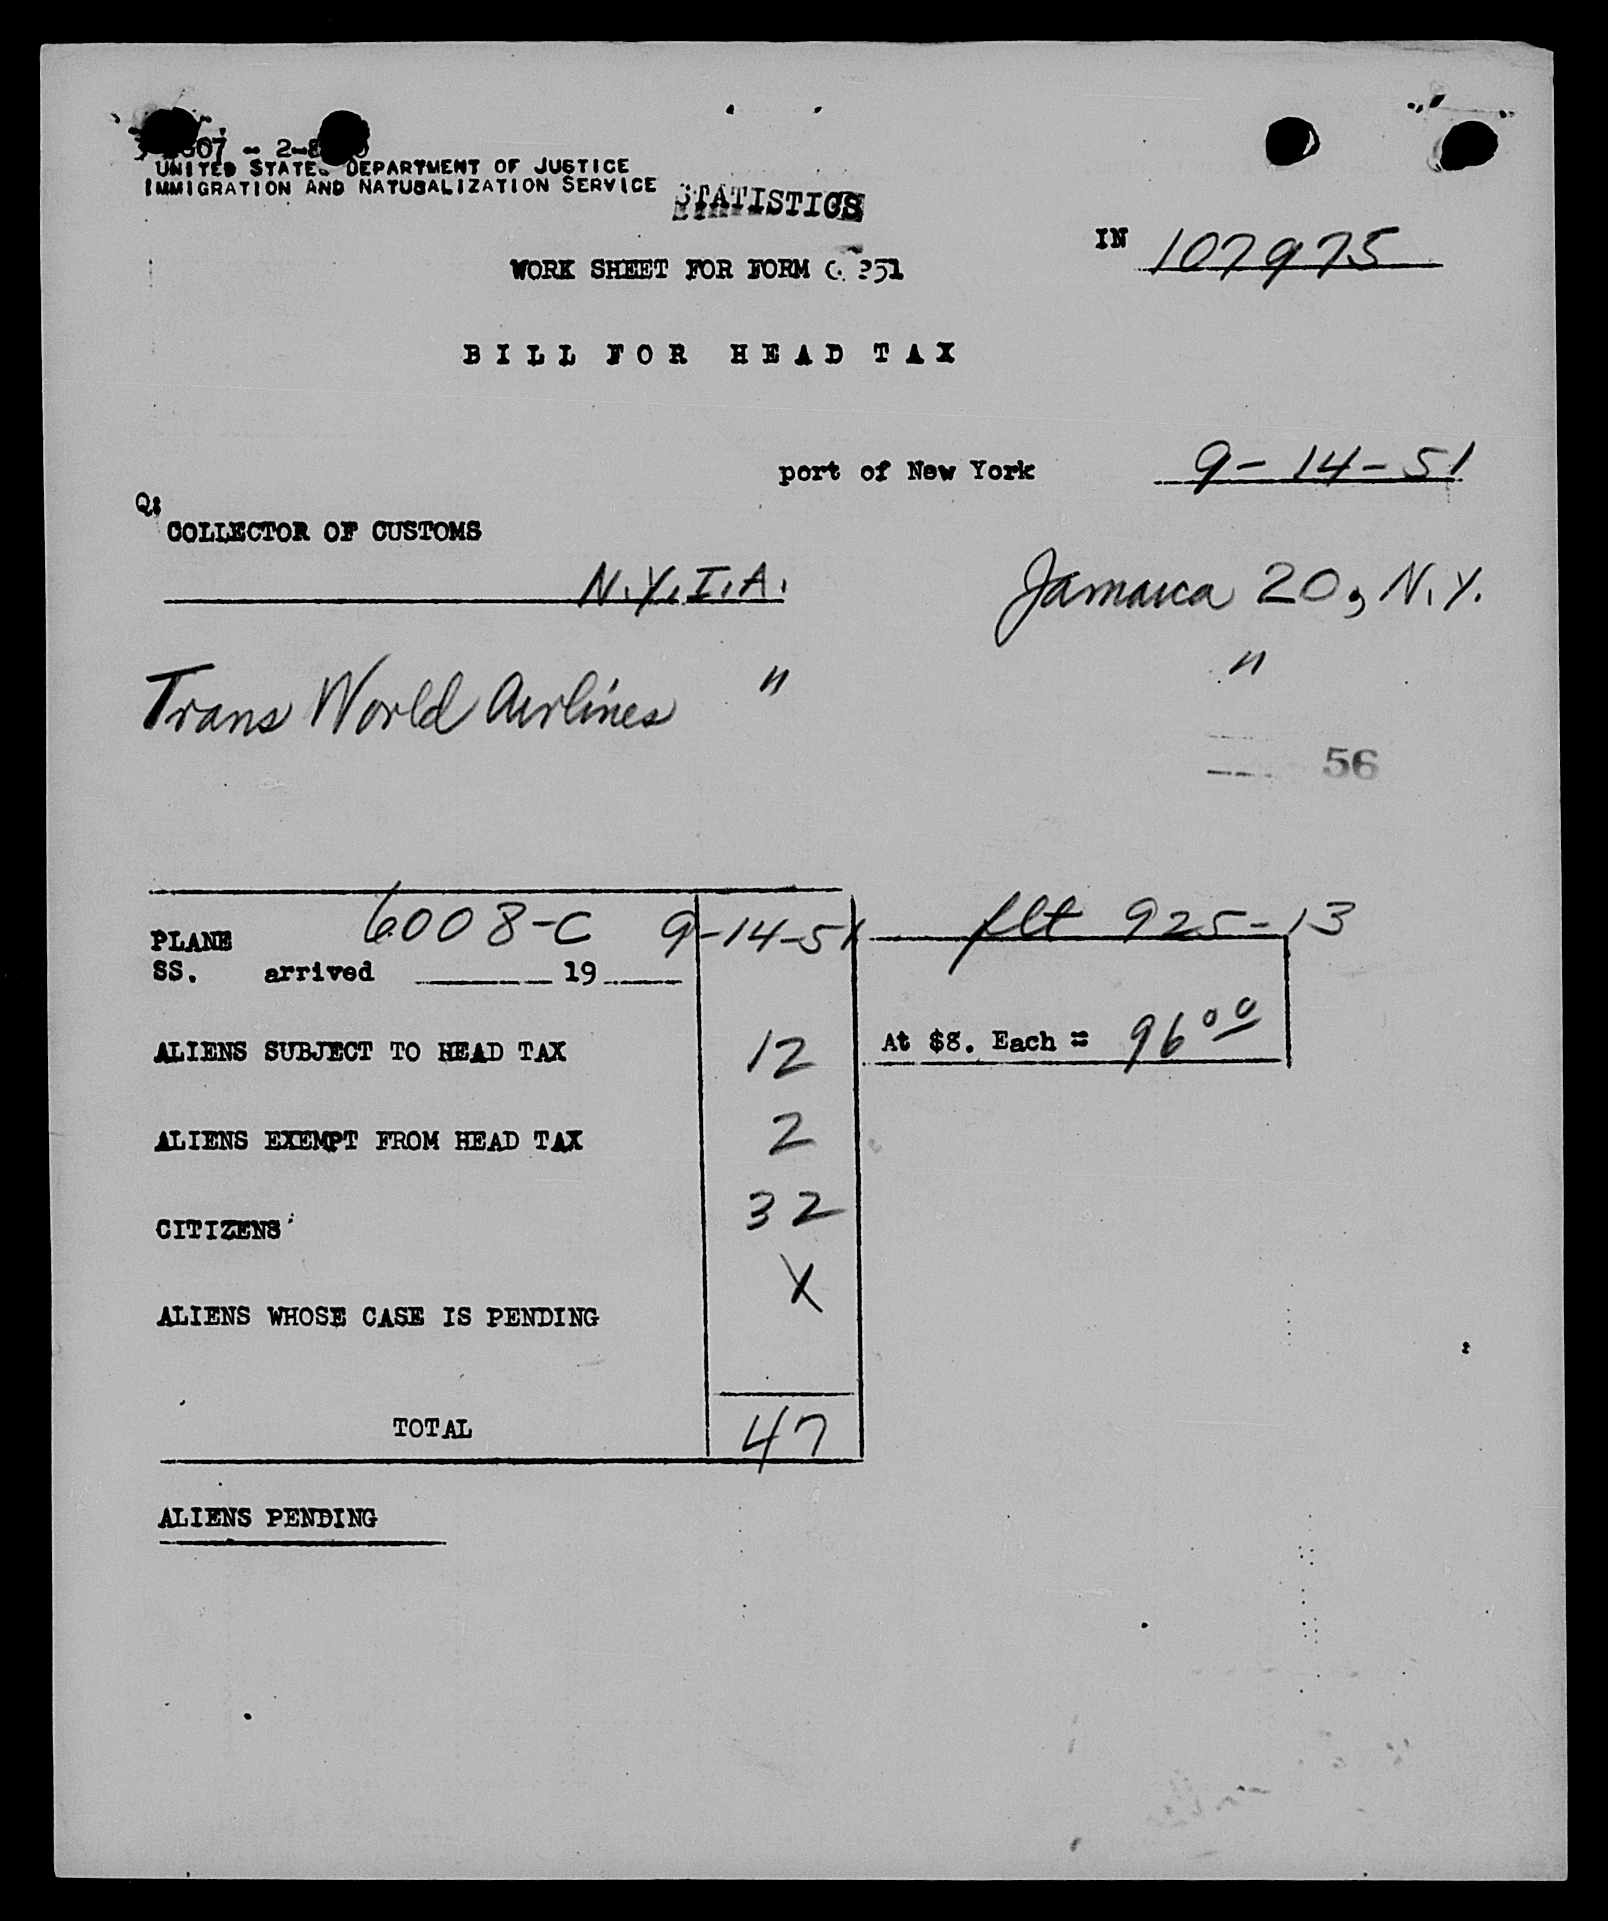 07 - 2-8
UNITED STATES DEPARTMENT OF JUSTICE
IMMIGRATION AND NATURALIZATION SERVICE
STATISTICS
IN 107975
WORK SHEET FOR FORM 351
BILL FOR HEAD TAX
port of New York 9-14-51
Q:
COLLECTOR OF CUSTOMS
N.Y.I.A. Jamaica 20, N.Y.
Trans World Airlines " "
56
PLANE 6008-C 9-14-51 flt 925-13
SS. arrived 19
ALIENS SUBJECT TO HEAD TAX 12 At $8. Each = 96 00
ALIENS EXEMPT FROM HEAD TAX 2
CITIZENS 32
ALIENS WHOSE CASE IS PENDING X
TOTAL 47
ALIENS PENDING